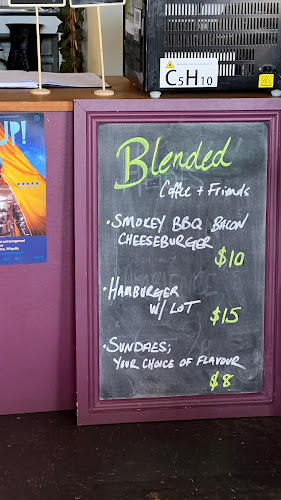 C5H10
UP!
Blended
Coffee + Friends
• SMOKEY BBQ BACON
CHEESEBURGER
$10
• HAMBURGER
W/ LOT
$15
• SUNDAES;
YOUR CHOICE OF FLAVOUR
$8